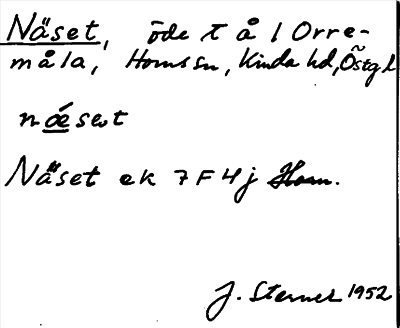 Näset, öde t å l Orre-
måla, Horns sn, Kinda hd, Östgl
næset
Näset ek 7F4j Horn.
J. Sterner 1952